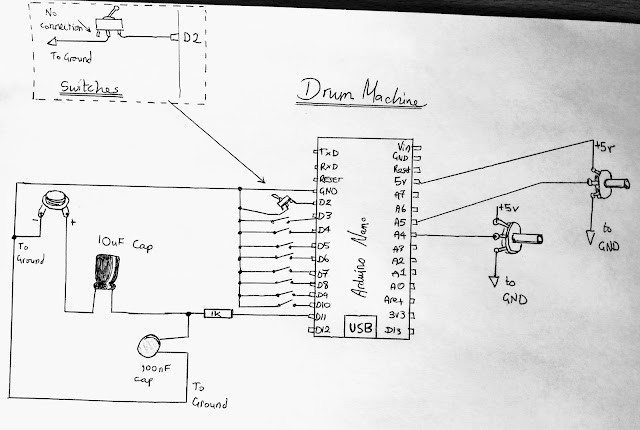 No
connection
D2
To Ground
Switches
Drum Machine
Arduino Nano
TxD
RxD
RESET
GND
D2
D3
D4
D5
D6
D7
D8
D9
D10
D11
D12
Vin
GND
Reset
5v
A7
A6
A5
A4
A3
A2
A1
A0
Aref
3v3
D13
USB
+5v
to
GND
+5v
to
GND
-
+
To
Ground
10uF Cap
1K
100nF
cap
To
Ground